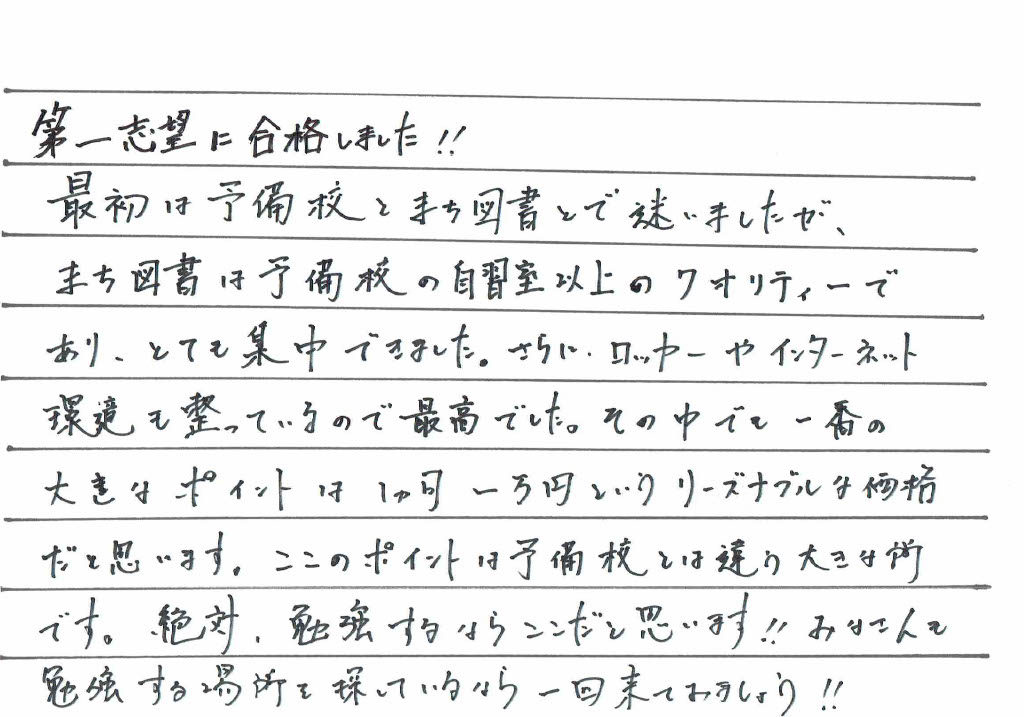 第一志望に合格しました!!
最初は予備校とまち図書とで迷いましたが、
まち図書は予備校の自習室以上のクオリティーで
あり、とても集中できました。さらに、ロッカーやインターネット
環境も整っているので最高でした。その中でも一番の
大きなポイントは1ヵ月一万円というリーズナブルな価格
だと思います。ここのポイントは予備校とは違う大きな所
です。絶対、勉強するならここだと思います!!みなさんも
勉強する場所を探しているなら一回来てみましょう!!